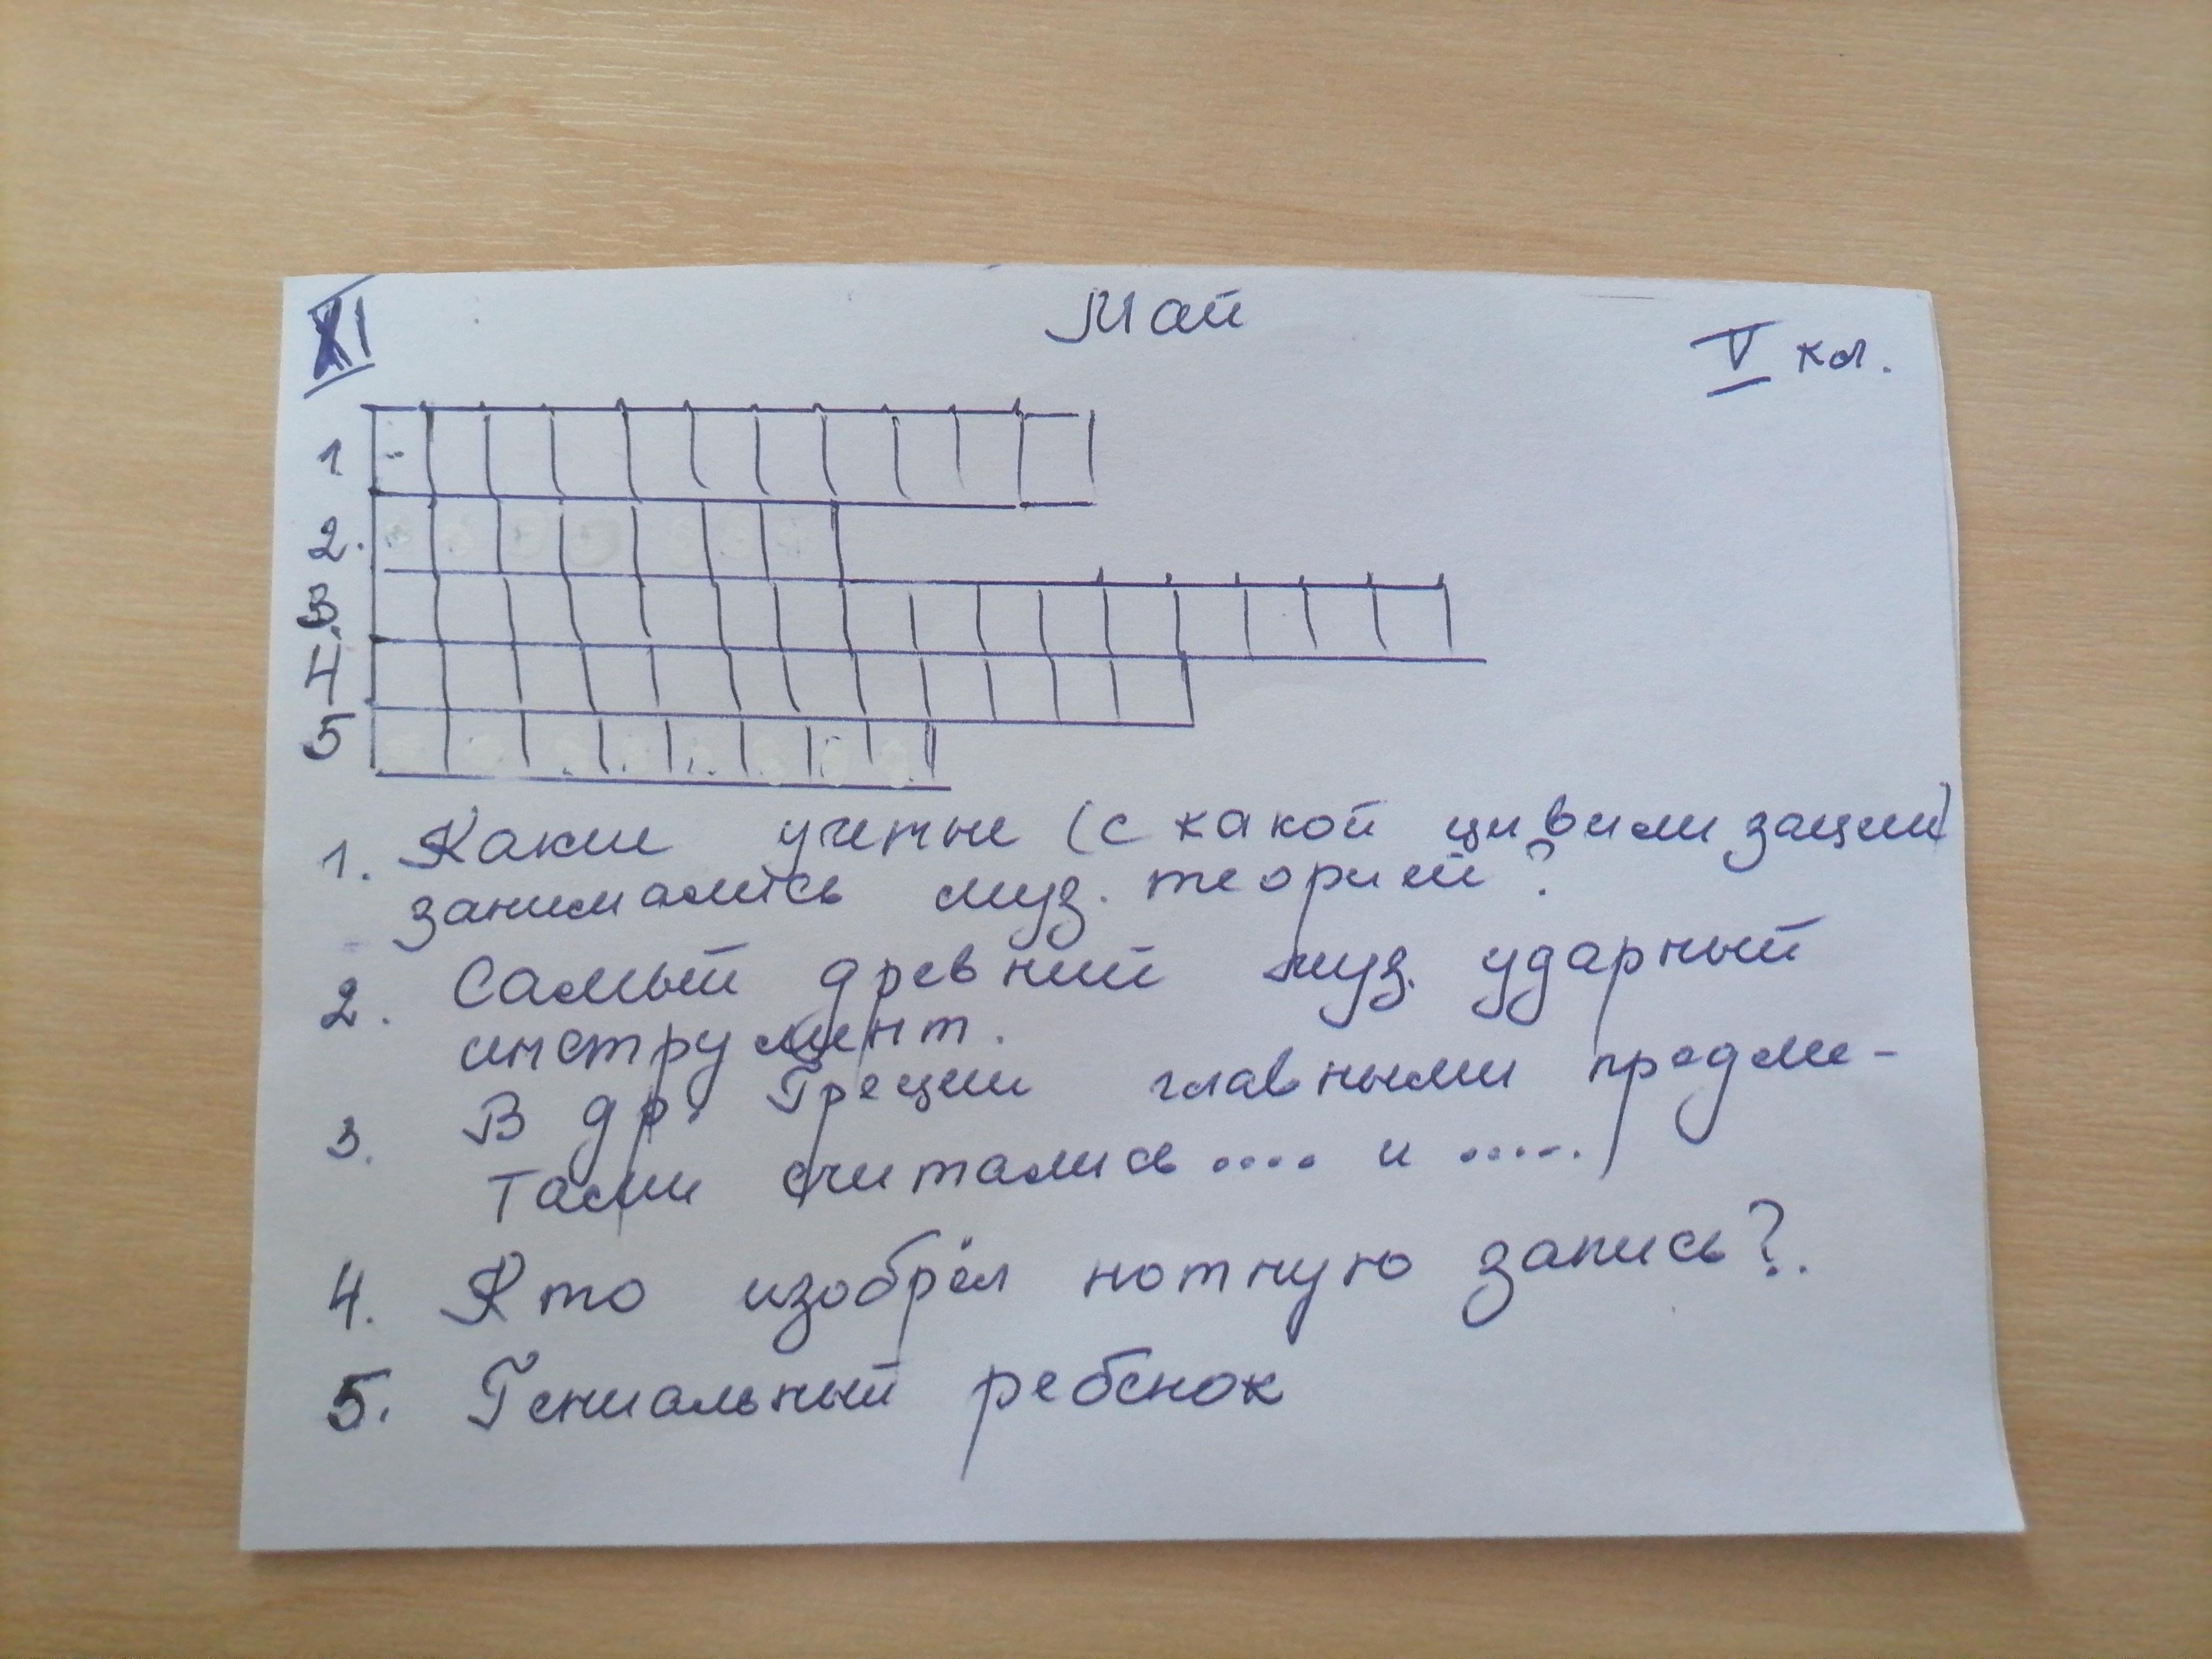 XI
Май
V кл.
1
2.
3.
4
5
1. Какие ученые (с какой цивилизации)
занимались муз. теорией?
2. Самый древний муз. ударный
инструмент.
3. В др. Греции главными предме-
тами считались .... и .....
4. Кто изобрёл нотную запись?.
5. Гениальный ребенок